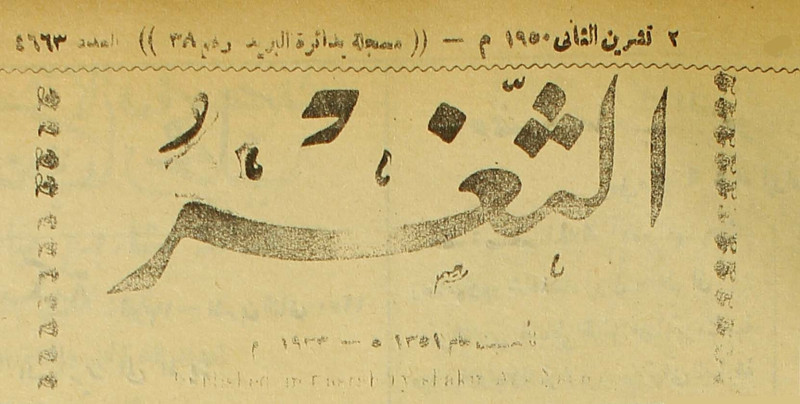 ٢ تشرين الثاني ١٩٥٠ م — (( مسجلة بدائرة البريد رقم ٣٨ )) العدد ٤٦٦٣
الثَّغْرُ
تأسست عام ١٣٥١ ه — ١٩٣٣ م